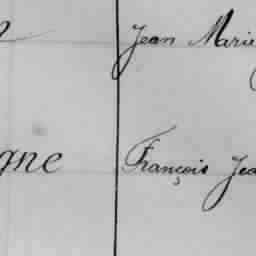 Jean Marie
gne François Jea